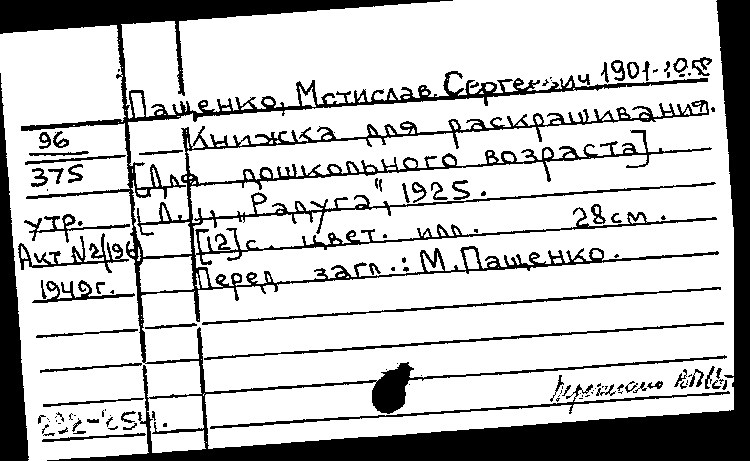 Пащенко, Мстислав Сергеевич, 1901-
96 Книжка для раскрашивания.
375 [Для дошкольного возраста].
утр. [Л.], "Радуга", 1925.
Акт №2(196) [12]с. цвет. илл. 28см.
1949г. Перед загл.: М.Пащенко.
292-254.